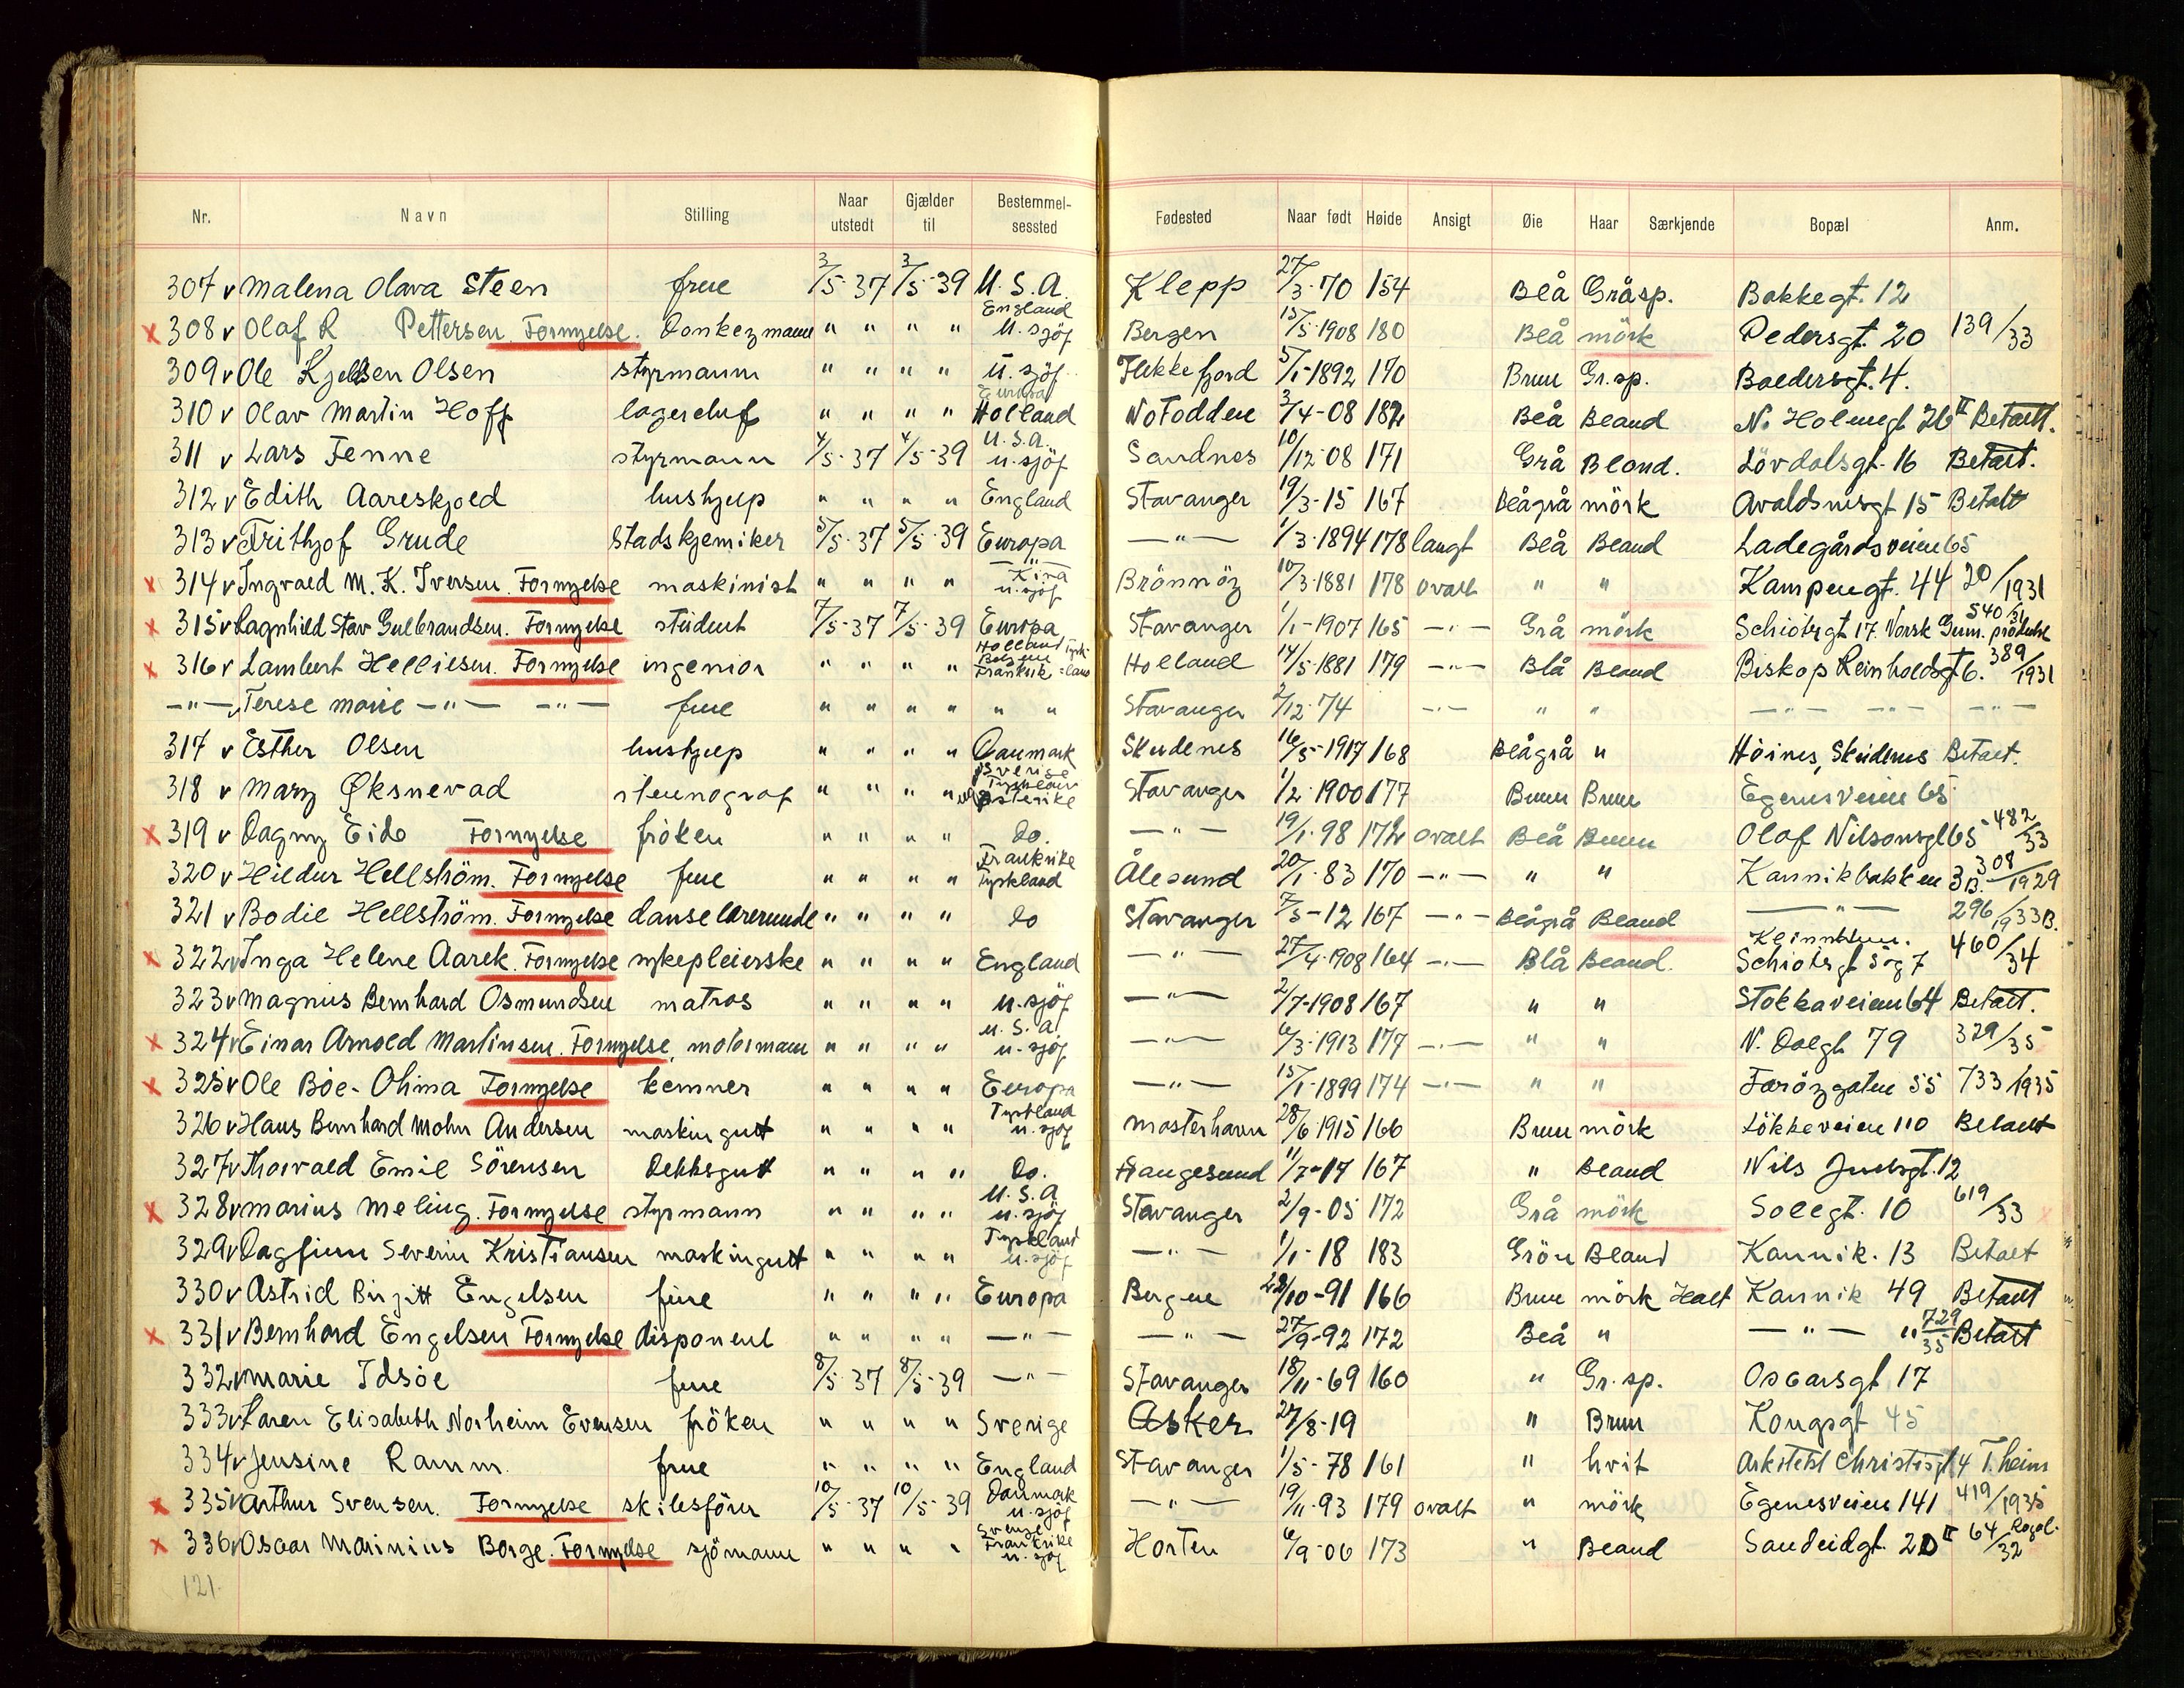 Nr. Navn Stilling Naar utstedt Gjælder til Bestemmel-sessted Fødested Naar født Høide Ansigt Øie Haar Særkjende Bopæl Anm.
307 v Malena Olava Steen frue 3/5-37 3/5-39 U.S.A. Klepp 27/3-70 154 Blå Gråsp. Bakkegt. 12
x 308 v Olaf R Pettersen. Fornyelse. Donkeymann " " " " England u. sjöf Bergen 15/5-1908 180 Blå mörk Pedersgt. 20 139/33
309 v Ole Kjeldsen Olsen styrmann " " " " u. sjöf. Flekkefjord 5/1-1892 170 Brun Gr.sp. Baldersgt. 4.
310 v Olav Martin Hoff lagerchef " " " " Europa Holland Notodden 3/4-08 182 Blå Bland N. Holmegt 26 II Betalt.
311 v Lars Fenne styrmann 4/5-37 4/5-39 U.S.A. u. sjöf Sandnes 10/12-08 171 Grå Blond. Lövdalsgt. 16 Betalt.
312 v Edith Aareskjold hushjelp " " " " England Stavanger 19/3-15 167 Blågrå mörk Avaldsnesgt 15 Betalt
313 v Frithjof Grude Stadskjemiker 5/5-37 5/5-39 Europa —"— 1/3-1894 178 langt Blå Bland Ladegårdsveien 65
x 314 v Ingvald M. K. Iversen. Fornyelse maskinist " " " " —"— Kina u. sjöf Brönnöy 10/3-1881 178 ovalt " " Kampengt. 44 20/1931
x 315 v Ragnhild Stav Gulbrandsen. Fornyelse student 7/5-37 7/5-39 Europa Stavanger 1/1-1907 165 —"— Grå mörk Schiötzgt 17. Norsk Gum. produkte 540/31
x 316 v Lambert Helliesen. Fornyelse ingeniör " " " " Holland Belgien Frankrik Tysk=land Holland 14/5-1881 179 —"— Blå Bland Biskop Reinholdsgt 6. 389/1931
—"— v Terese Marie —"— —"— frue " " " " " " Stavanger 2/12-74 —"— " " —"— —"— —"—
317 v Esther Olsen hushjelp " " " " Danmark Skudenes 16/5-1917 168 Blågrå " Höines, Skudenes Betalt.
318 v Mary Øksnevad stenograf " " " " Sverige Tyskland Østerike Stavanger 1/2-1900 177 Brun Brun Egenesveien 65
x 319 v Dagny Eide Fornyelse fröken " " " " do. —"— 19/1-98 172 ovalt Blå Brun Olaf Nilsonsgt 65 482/33
320 v Hildur Hellström. Fornyelse frue " " " " Frankrike Tyskland Ålesund 20/1-83 170 —"— " " Kannikbakken 3B. 308/1929
321 v Bodil Hellström. Fornyelse danselærerinde " " " " do Stavanger 7/5-12 167 —"— Blågrå Bland —"— 296/1933B.
x 322 v Inga Helene Aarek. Fornyelse sykepleierske " " " " England —"— 27/4-1908 164 —"— Blå Bland. Schiötzgt 5 og 7 460/34
323 v Magnus Bernhard Osmundsen matros " " " " u. sjöf —"— 2/7-1908 167 " " Stokkaveien 64 Betalt.
x 324 v Einar Arnold Martinsen. Fornyelse, motormann " " " " U.S.A. u. sjöf —"— 6/3-1913 177 —"— " " N. Dalgt 79 329/35
x 325 v Ole Böe-Ohma Fornyelse kemner " " " " Europa —"— 15/1-1899 174 —"— " " Faröygaten 55 733/1935
326 v Hans Bernhard Mohn Andersen maskingutt " " " " Tyskland u. sjöf Mosterhavn 28/6 1915 166 Brun mörk Lökkeveien 110 Betalt
327 v Thorvald Emil Sörensen dekksgutt " " " " do. Haugesund 11/7-17 167 " Bland Nils Juelsgt. 12
x 328 v Marius Meling. Fornyelse styrmann " " " " U.S.A u. sjöf Stavanger 2/9-05 172 Grå mörk Solegt. 10 619/33
329 v Dagfinn Severin Kristiansen maskingutt " " " " Tyskland u. sjöf —"— 1/1-18 183 Grön Bland Kannik. 13 Betalt
330 v Astrid Birgitt Engelsen frue " " " " Europa Bergen 22/10-91 166 Brun mörk Halt Kannik 49 Betalt
x 331 v Bernhard Engelsen Fornyelse disponent " " " " —"— —"— 27/9-92 172 Blå " —"— " 729/35 Betalt
332 v Marie Idsöe frue 8/5-37 8/5-39 —"— Stavanger 18/11-69 160 " Gr.sp. Oscarsgt 17
333 v Karen Elisabeth Norheim Evensen fröken " " " " Sverige Asker 27/8-19 " Brun Kongsgt 45
334 v Jensine Ramm. frue " " " " England Stavanger 1/5-78 161 " hvit Arkitekt Christiesgt 4 T.heim
x 335 v Arthur Svensen. Fornyelse skibsförer 10/5-37 10/5-39 Danmark u. sjöf —"— 19/11-93 179 ovalt " mörk Egenesveien 141 419/1935
x 336 v Oscar Marinius Borge. Fornyelse sjömann " " " " Sverige Frankrike u. sjöf Horten 6/9-06 173 " Bland Sandeidgt. 20 II 64/32 Rogal.
121